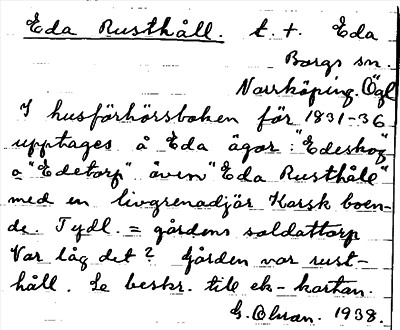 Eda Rusthåll. t. t. Eda
Borgs sn.
Norrköping. Ögl
I husförhörsboken för 1831-36
upptages å Eda ägor: "Edeskog"
o "Edetorp" även "Eda Rusthåll"
med en livgrenadjär Karsk boen-
de. Tydl. = gårdens soldattorp
Var låg det? Gården var rust-
håll. Se beskr. till ek-kartan.
G. Olsson. 1938.